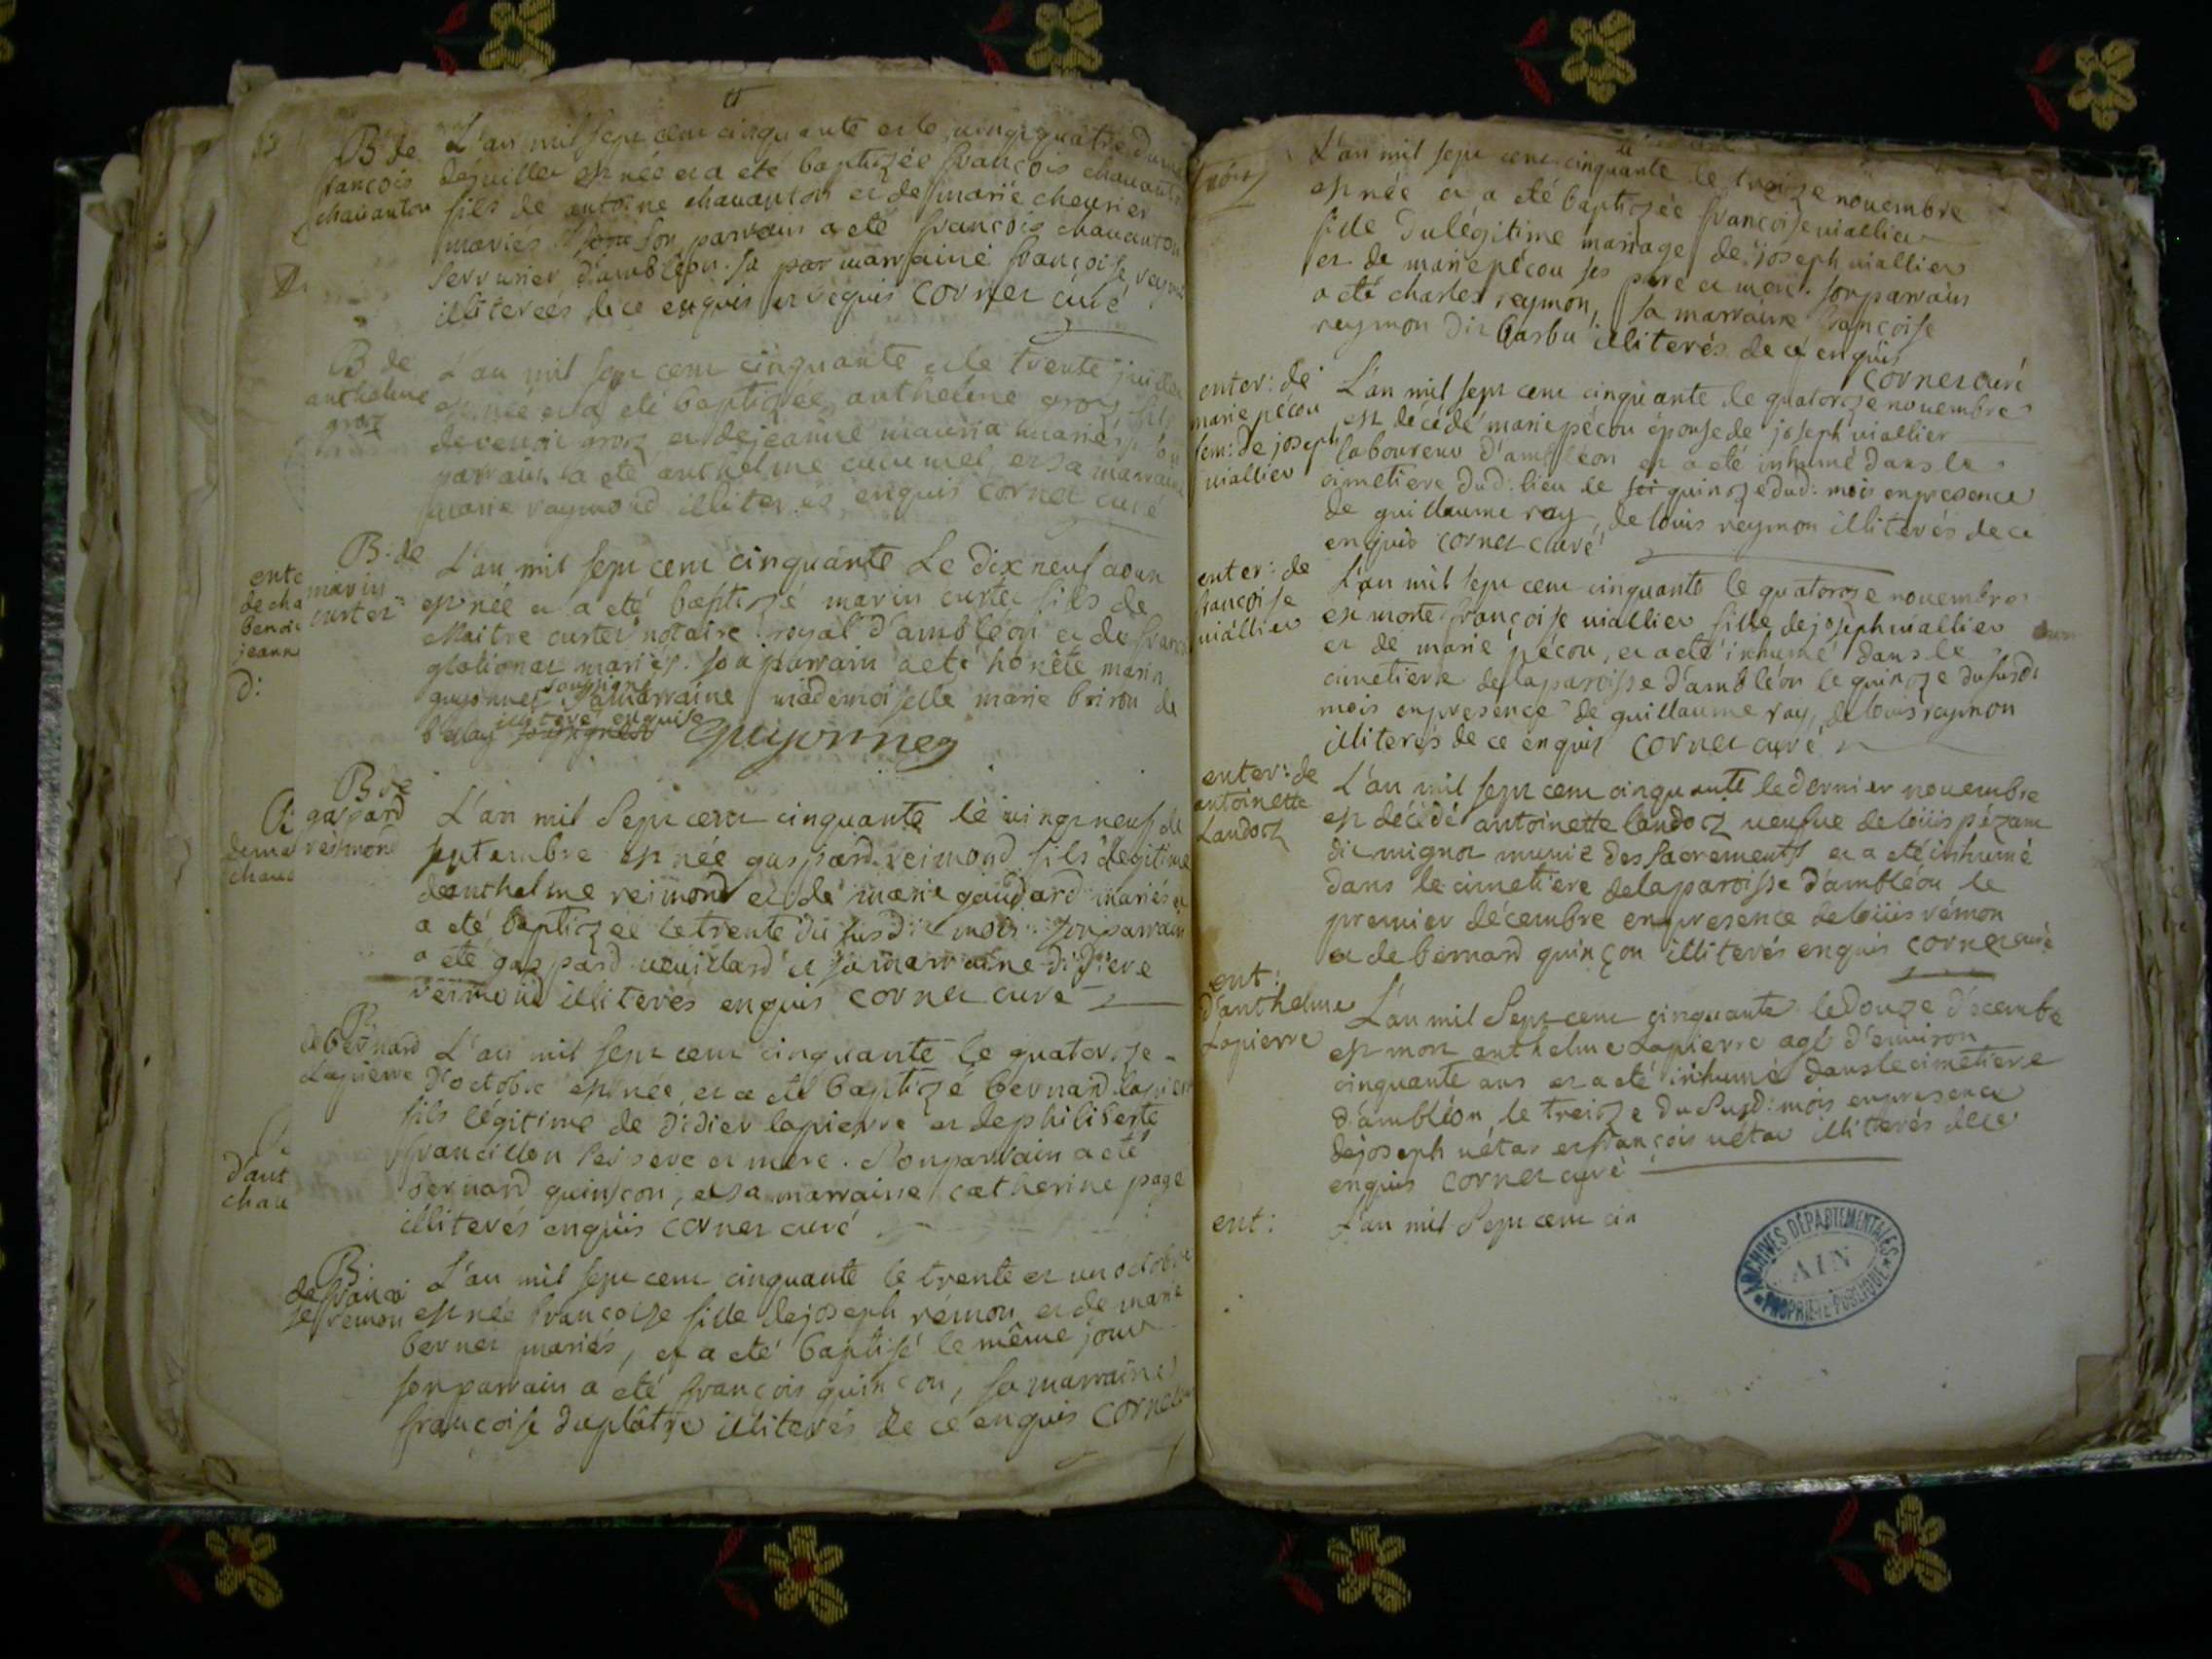 B. de
françois
chavanton
L'an mil sept cent cinquante et le vingt quatre du mois
de juillet est née et a eté baptizée françois chavanton
fils de antoine chavanton et de marie cheurier
mariés son parrain a eté françois chavanton
serrurier d'ambléon. sa par marraine françoise reymon
illiterées de ce enquis et requis cornet curé
B. de
anthelme
groz
L'an mil sept cent cinquante et le trente juillet
est née et a eté baptizée anthelme groz fils
de groz et de jeanne mariés, son
parrain a eté anthelme et sa marraine
marie raymond illiterés enquis cornet curé
B. de
marin
curtet
L'an mil sept cent cinquante Le dix neuf aoust
est née et a eté baptizé marin curtet fils de
Maitre curtet notaire royal d'ambléon et de
mariés. son parrain a eté honête marin
guyonnet soussigné sa marraine mademoiselle marie briron de
bellay illiteré enquise guyonnet
ente
de cha
benoi
jeann
D:
B. de
gaspard
reimond
L'an mil Sept cent cinquante le vingt neuf de
septembre est née gaspard reimond fils legitime
d'anthelme reimond et de marie gaudard mariés et
a eté baptizéé le trente du susdit mois. son parrain
a eté gaspard veuillard et sa marraine didiere
reimond illiterés enquis cornet curé
B
de bernard
Lapierre
L'an mil sept cent cinquante le quatorze
d'octobre est née, et a eté baptizé bernard lapierre
fils légitime de didier lapierre et de philiberte
francillon ses pere et mere. Son parrain a eté
bernard quinson, et sa marraine catherine page
illiterés enquis cornet curé
d'ant
chau
B:
de françoi
se rémon
L'an mil sept cent cinquante le trente et un octobre
est née françoise fille de joseph rémon et de marie
bernet mariés, et a eté baptisé le même jour
son parrain a eté françois quinçon, sa marraine
françoise duplâtre illiterés de ce enquis cornet
L'an mil sept cent cinquante le treize novembre
est née et a eté baptizée françoise viallier
fille du légitime mariage de joseph viallier
et de marie pécou ses pere et mere. son parrain
a eté charles reymon, sa marraine françoise
reymon dit barbu illiterés de ce enquis
cornet curé
enter: de
marie pécou
fem: de joseph
viallier
L'an mil sept cent cinquante le quatorze novembre
est décédé marie pécou épouse de joseph viallier
laboureur d'ambléon et a eté inhumé dans le
cimetiere dud: lieu le quinze dud: mois en presence
de guillaume ray, de louis reymon illiterés de ce
enquis cornet curé
enter: de
françoise
viallier
L'an mil sept cent cinquante le quatorze novembre
est morte françoise viallier fille de joseph viallier
et de marie pécou, et a eté inhumé dans le
cimetiere de la paroisse d'ambléon le quinze du susd:
mois en presence de guillaume ray, de louis reymon
illiterés de ce enquis cornet curé
enter: de
antoinette
Landoz
L'an mil sept cent cinquante le dernier novembre
est décédé antoinette landoz veufve de loüis pézant
dit mignot munie des sacrements et a eté inhumé
dans le cimetiere de la paroisse d'ambléon le
premier décembre en presence de loüis rémon
et de bernard quinçon illiterés enquis cornet curé
ent:
d'anthelme
Lapierre
L'an mil Sept cent cinquante le douze décembre
est mort anthelme Lapierre agé d'environ
cinquante ans et a eté inhumé dans le cimetiere
d'ambléon, le treize du Susd: mois en presence
de joseph vétar et françois vétar illiterés de ce
enquis cornet curé
ent:
L'an mil Sept cent cin
ARCHIVES DÉPARTEMENTALES
AIN
PROPRIÉTÉ PUBLIQUE